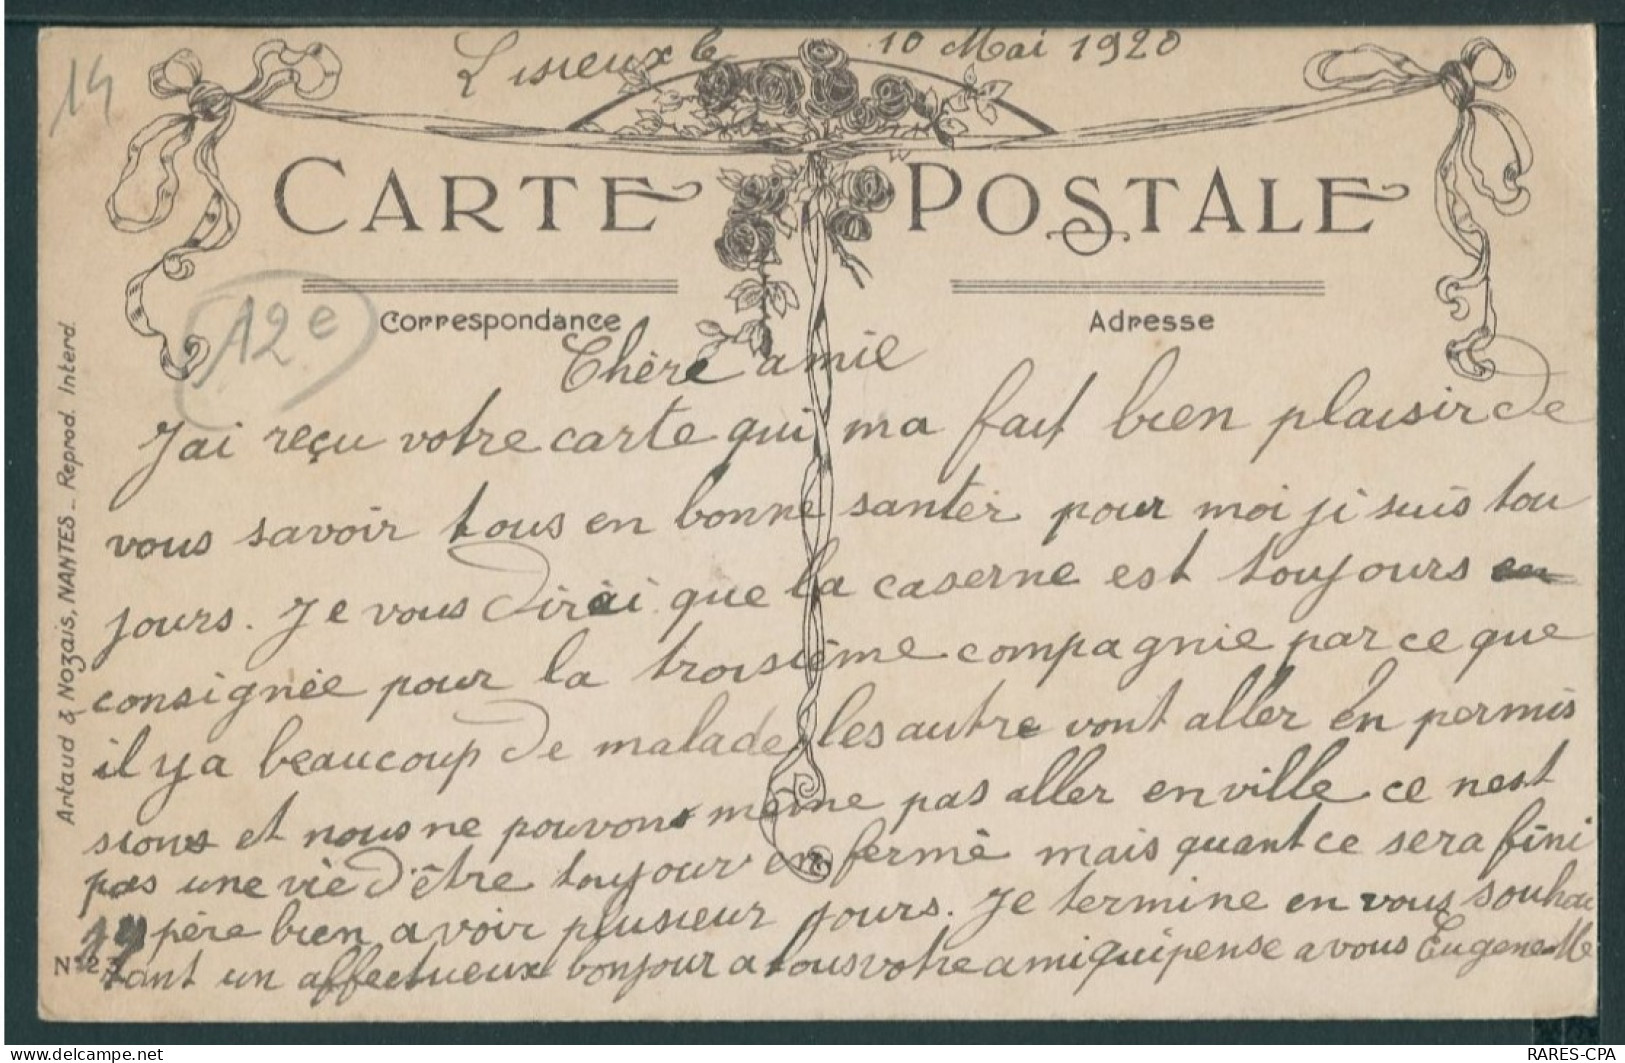 14
Lisieux le 10 Mai 1920
CARTE POSTALE
12e
Correspondance
Adresse
Chère amie
J'ai reçu votre carte qui ma fait bien plaisir de
vous savoir tous en bonne santer pour moi ji suis tou
jours. Je vous dirai que la caserne est toujours en
consignée pour la troisième compagnie par ce que
il y a beaucoup de malade les autre vont aller en permis
sions et nous ne pouvons même pas aller en ville ce nest
pas une vie d'être toujour en fermé mais quant ce sera fini
jespère bien avoir plusieur jours. Je termine en vous souhai
tant un affectueux bonjour a tous votre ami qui pense a vous Eugene
Artaud & Nozais, NANTES _ Reprod. Interd.
N° 23
RARES-CPA
delcampe.net